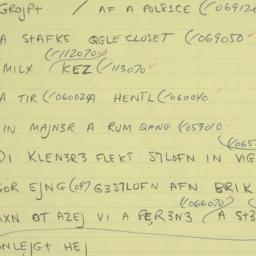 GROJPT / AF A POL8ICE (069120
A STAFKE QGLE CLOSET (069050
(112070
MILX / KEZ (113070
A TIR (060020 HENTL (060040
IN MAJN3R A RUM QANG (059010
KLEN3R3 FLEKT S7LOFN IN VIG
EJNG G3S7LOFN AFN BRIK
(066070
OT AZEJ VI A PER3N3 (A ST3
HEJ